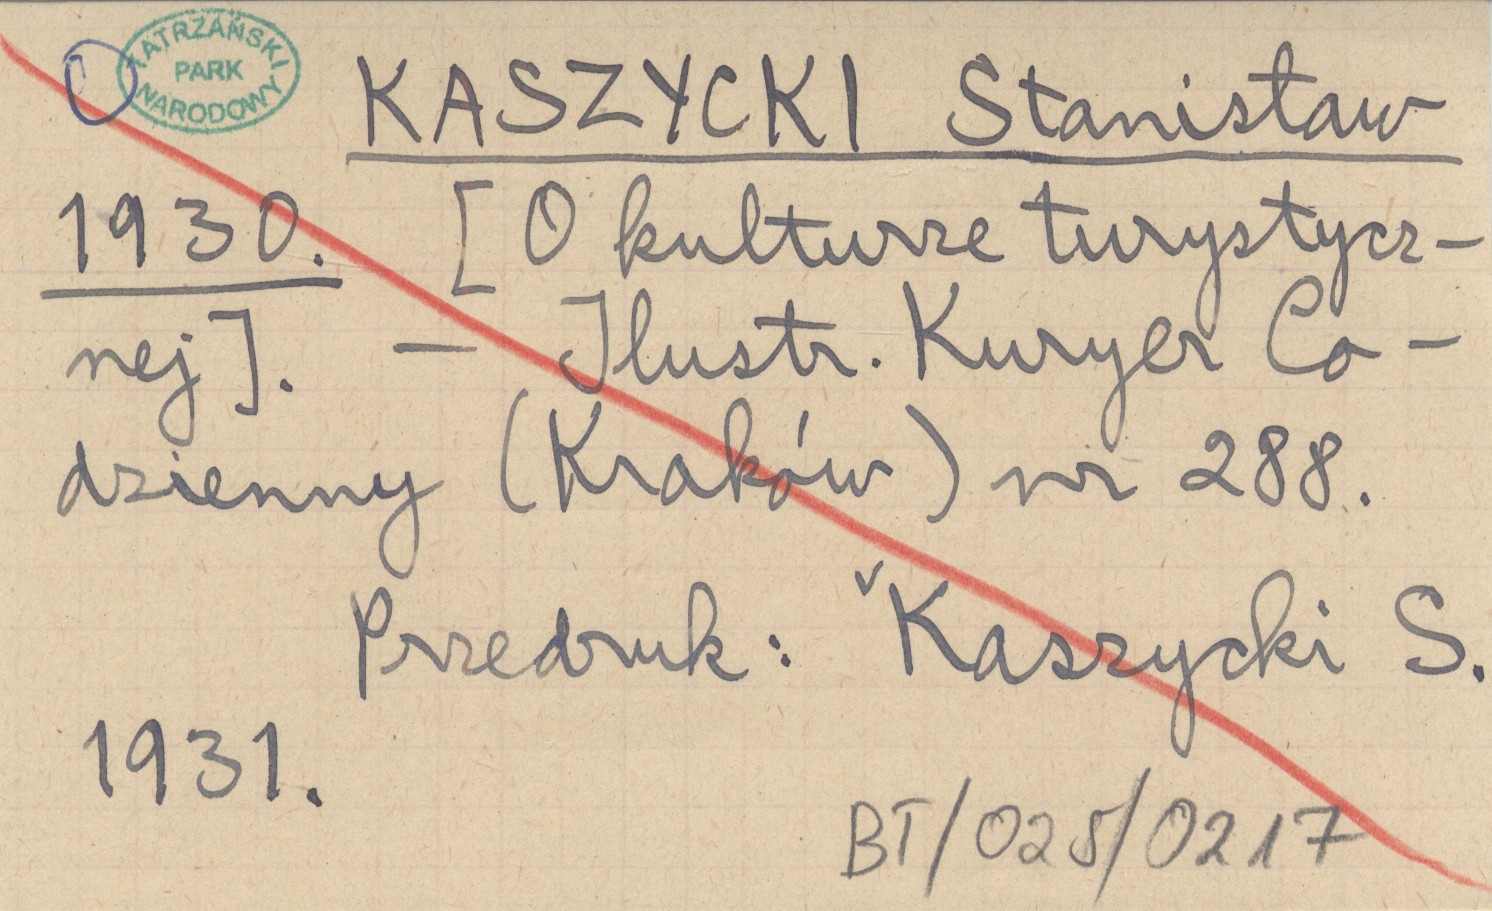 TATRZAŃSKI
PARK
NARODOWY
KASZYCKI Stanisław
1930. [O kulturze turystycz-
nej]. — Ilustr. Kuryer Co-
dzienny (Kraków) nr 288.
Przedruk: ˇKaszycki S.
1931.
BT/025/0217